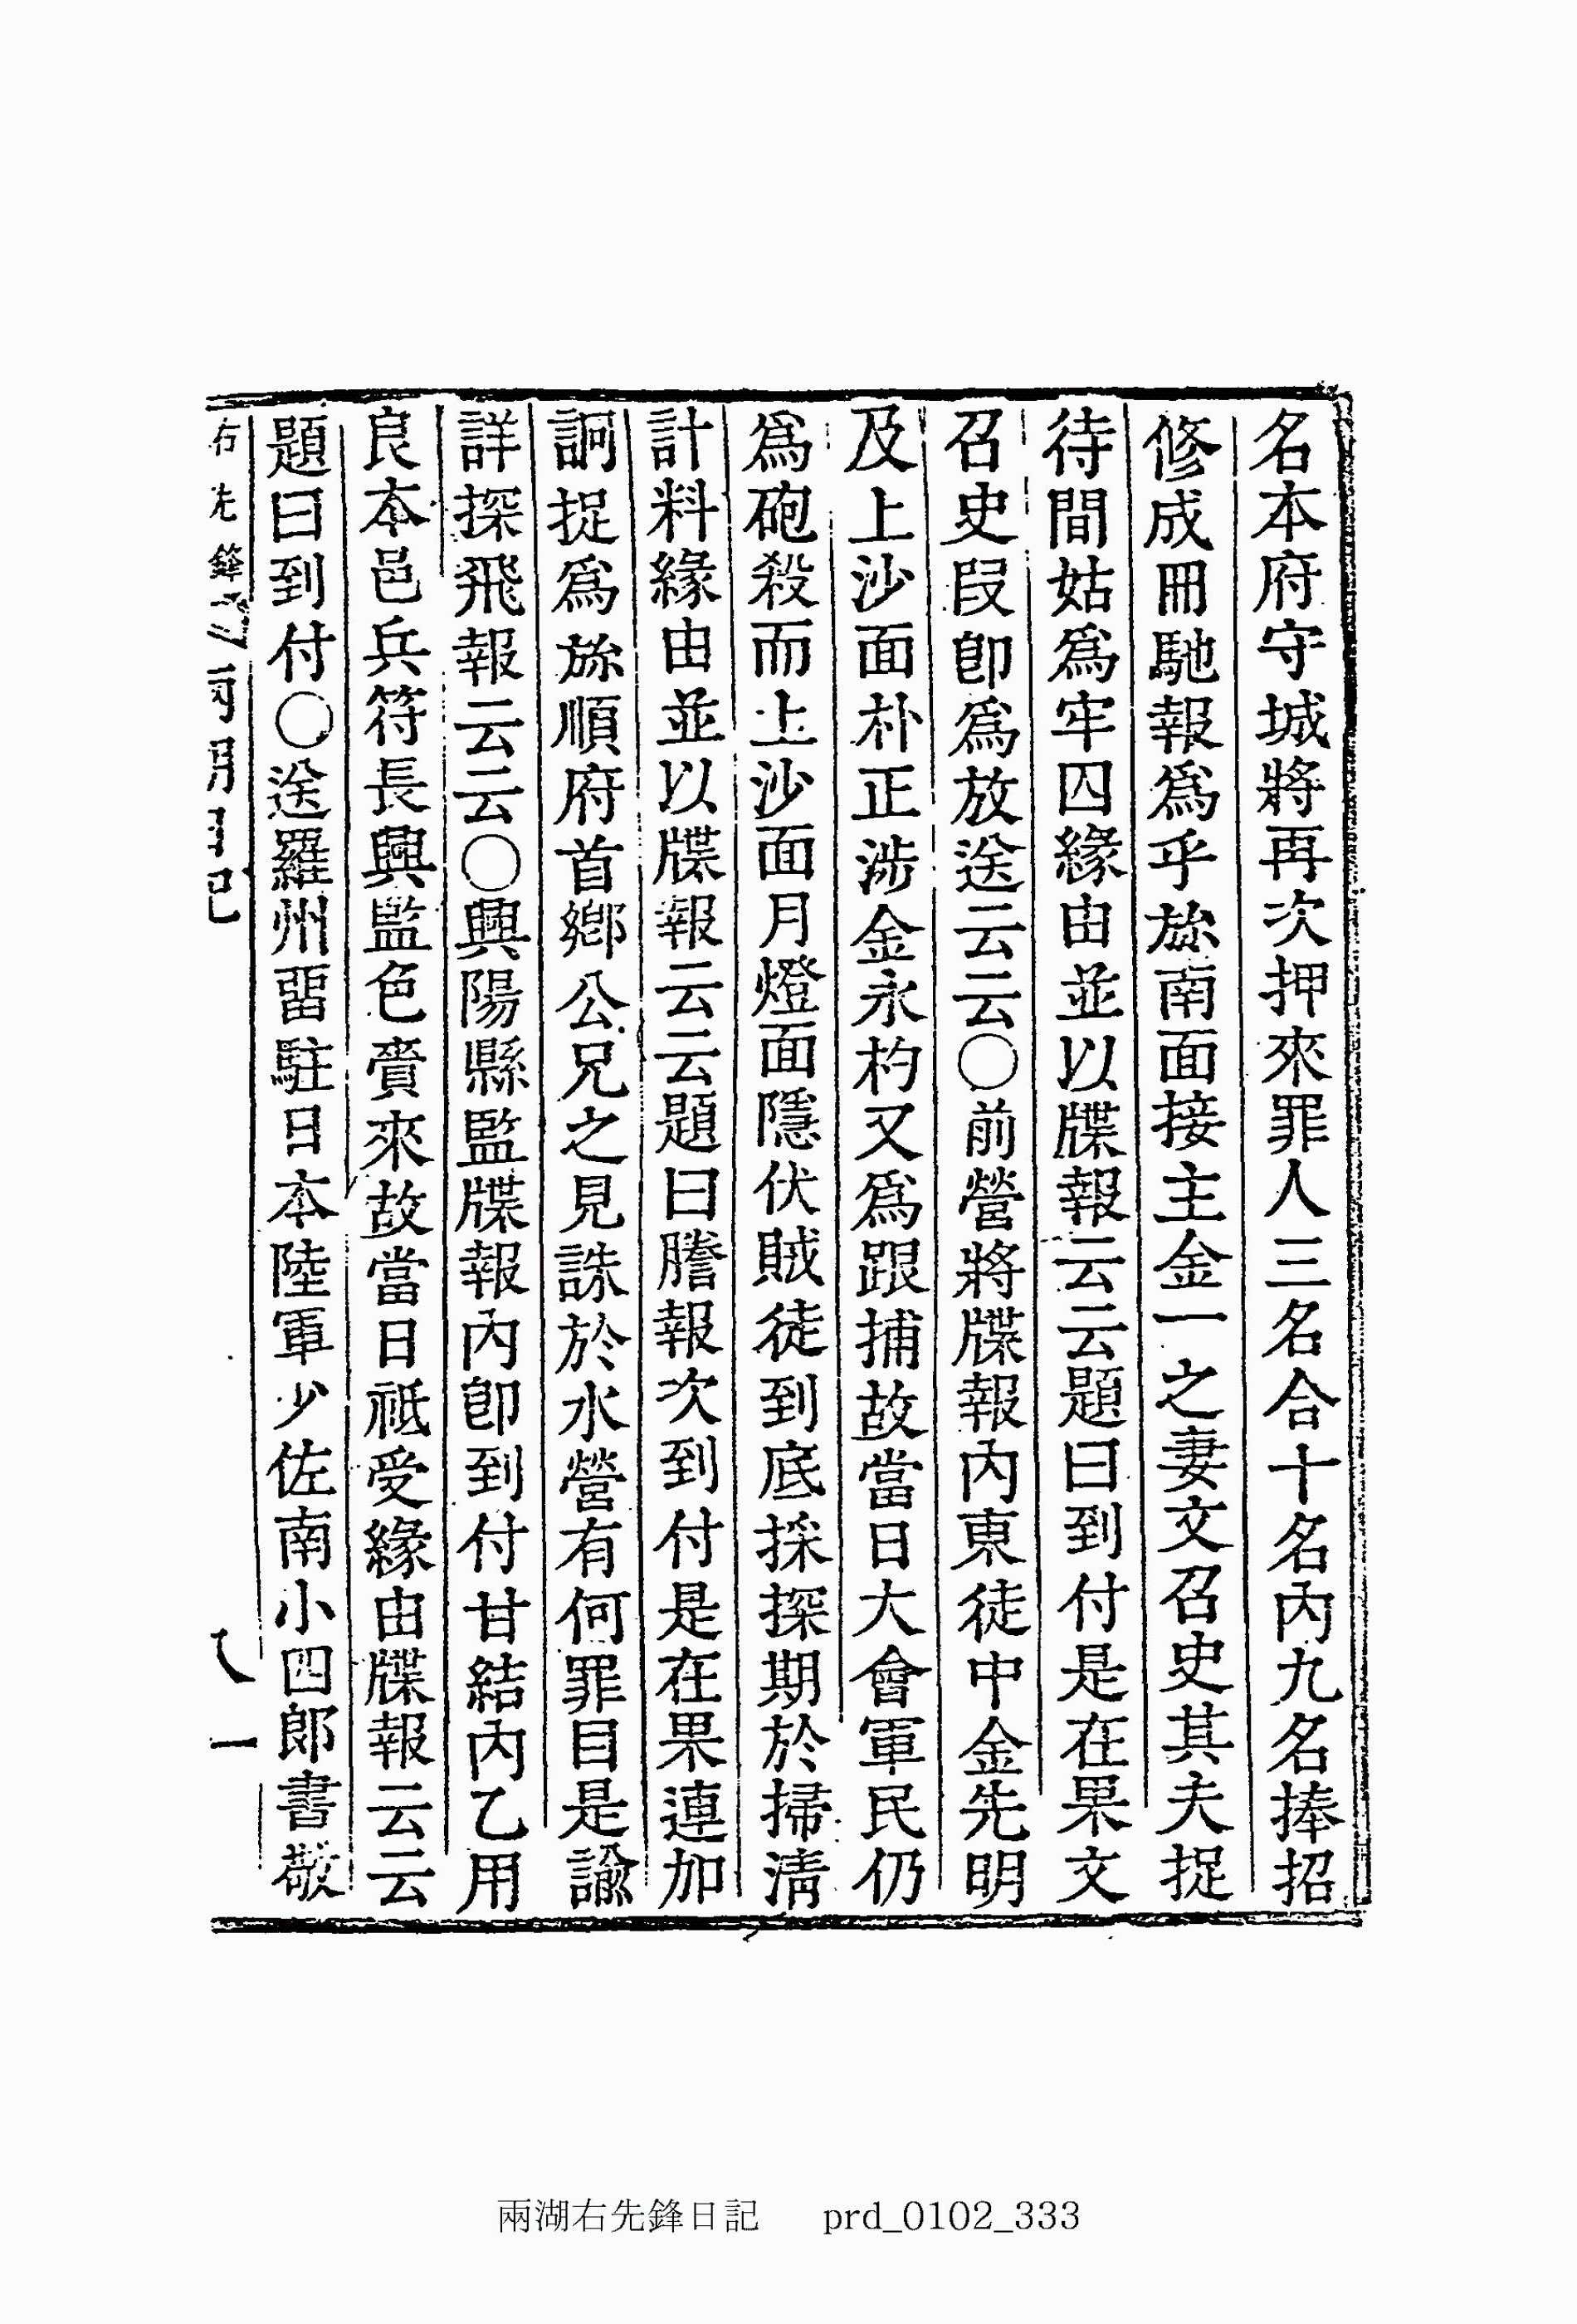 名本府守城將再次押來罪人三名合十名內九名捧招
修成冊馳報爲乎旀南面接主金一之妻文召史其夫捉
待間姑爲牢囚緣由並以牒報云云題曰到付是在果文
召史段卽爲放送云云○前營將牒報內東徒中金先明
及上沙面朴正涉金永杓又爲跟捕故當日大會軍民仍
爲砲殺而上沙面月燈面隱伏賊徒到底採探期於掃淸
計料緣由並以牒報云云題曰謄報次到付是在果連加
詗捉爲旀順府首鄕公兄之見誅於水營有何罪目是諭
詳探飛報云云○興陽縣監牒報內卽到付甘結內乙用
良本邑兵符長興監色賷來故當日祗受緣由牒報云云
題曰到付○送羅州留駐日本陸軍少佐南小四郞書敬
右先鋒 兩湖日記 八一
兩湖右先鋒日記 prd_0102_333